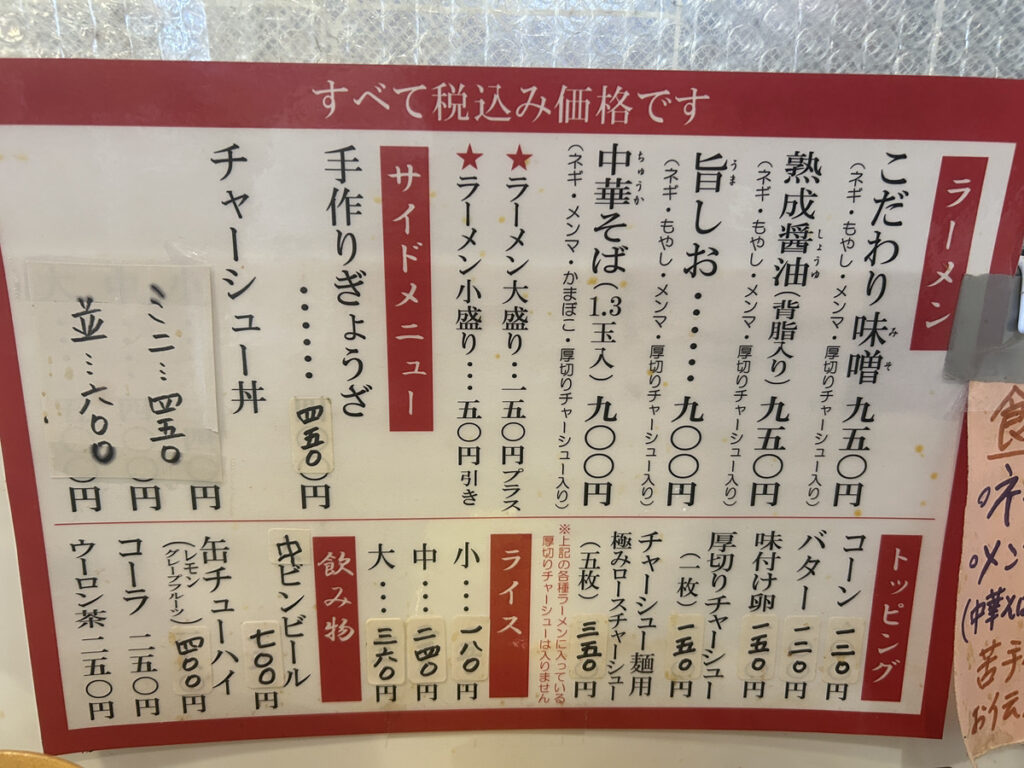 すべて税込み価格です
ラーメン
こだわり味噌 九五〇円
（ネギ・もやし・メンマ・厚切りチャーシュー入り）
熟成醤油（背脂入り）九五〇円
（ネギ・もやし・メンマ・厚切りチャーシュー入り）
旨しお……九〇〇円
（ネギ・もやし・メンマ・厚切りチャーシュー入り）
中華そば（1.3玉入）九〇〇円
（ネギ・メンマ・かまぼこ・厚切りチャーシュー入り）
★ラーメン大盛り…一五〇円プラス
★ラーメン小盛り…五〇円引き
サイドメニュー
手作りぎょうざ
……四五〇円
チャーシュー丼
ミニ…四五〇円
並…六〇〇円
トッピング
コーン 一二〇円
バター 一二〇円
味付け卵 一五〇円
厚切りチャーシュー
（一枚）一五〇円
チャーシュー麺用
極みロースチャーシュー
（五枚）三五〇円
※上記の各種ラーメンに入っている
厚切りチャーシューは入りません
ライス
小…一八〇円
中…二四〇円
大…三六〇円
飲み物
中ビンビール
七〇〇円
缶チューハイ
（レモン
グレープフルーツ）四〇〇円
コーラ 二五〇円
ウーロン茶 二五〇円
食
○ネ
○メン
(中華そ
苦手
お伝